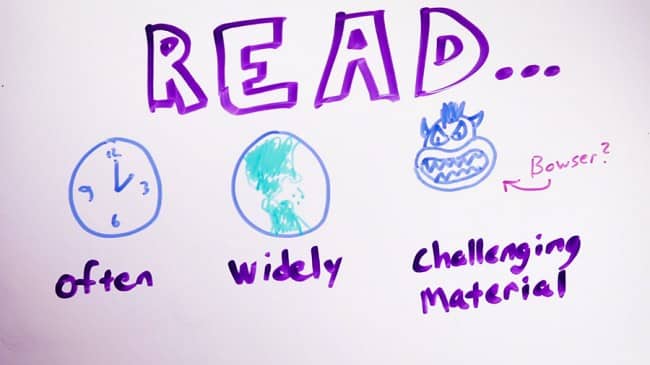 READ...
12
9 3
6
Bowser?
often widely Challenging
Material